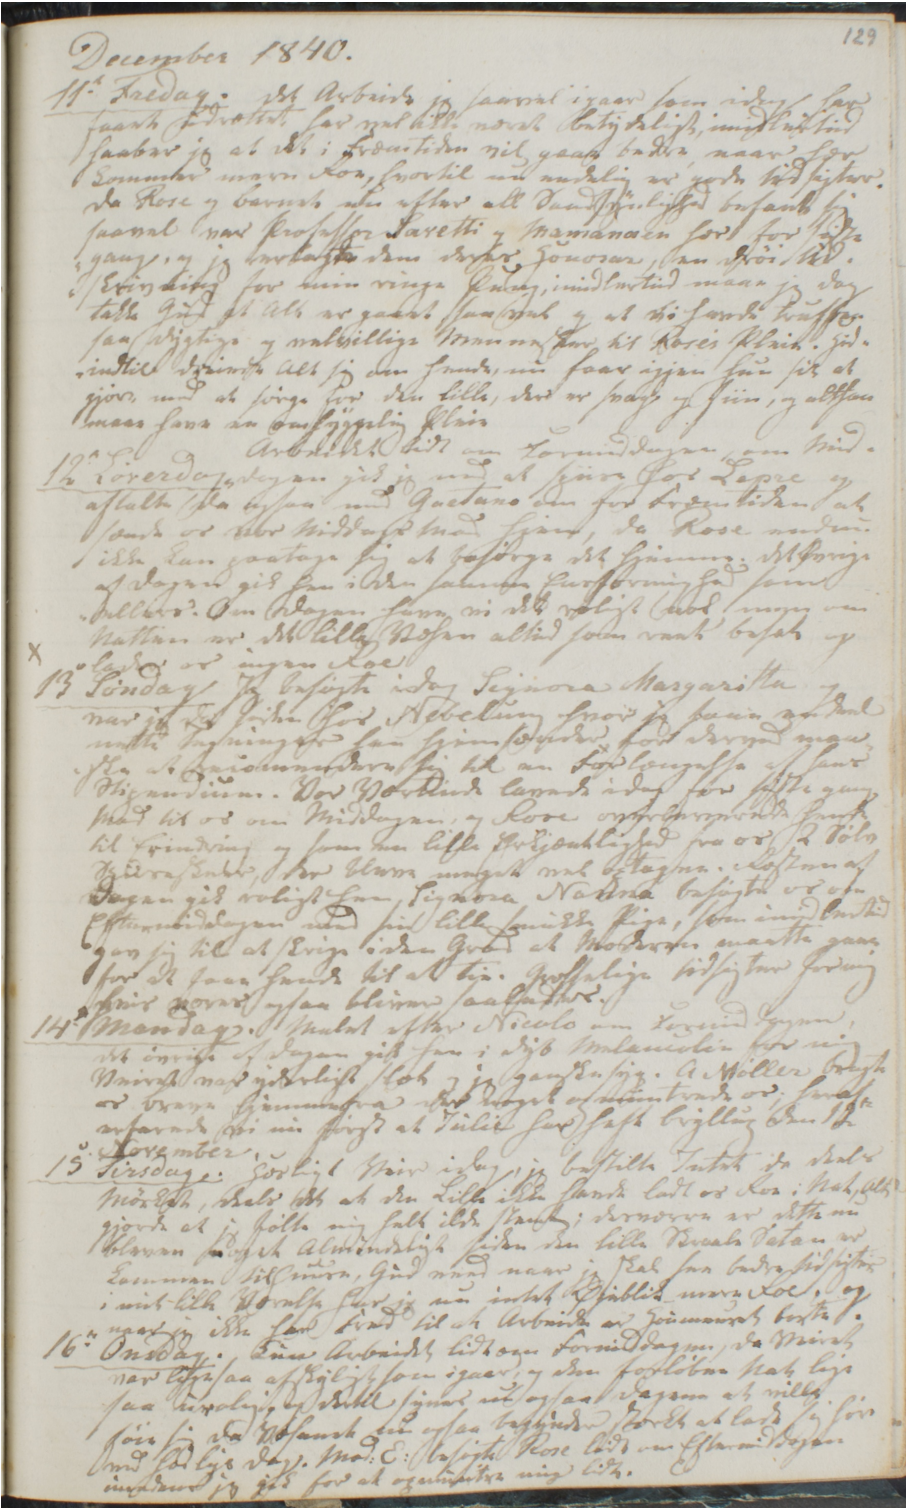 129
December 1840.
11te Fredag. Det Arbeide jeg saavel igaar som idag har
faaet udrættet har vel ikke været betydeligt, imidlertid
haaber jeg at det i Fremtiden vil gaae bedre, naar her
kommer mere Roe, hvortil nu endelig er gode Udsigter.
Da Rose og barnet nu efter all Sandsynlighed befandt sig
saavel var Professor Saretti og Mamanaen her for sidste
gang, og jeg erlagde dem deres Honorar, en drøi Ud-
skrivning for min ringe Pung, imidlertid maae jeg dog
takke Gud at Alt er gaaet saa vel og at vi havde truffet
saa dygtige og velvillige Mennesker til Roses Pleie. Hid-
indtil dreiede Alt sig om hende, nu faar igjen hun sit at
gjøre med at sørge for den lille, der er svag og fiin, og altsaa
maae have en omhyggelig Pleie
Arbeidet lidt om Formiddagen, om Mid-
12te Løverdag. dagen gik jeg ud at spise hos Lepre og
aftalte da ogsaa med Gaetano om for Fremtiden at
sende os vor Middags Mad hjem, da Rose endnu
ikke kan paatage sig at besørge det hjemme. Det øvrige
af Dagen gik hen i den samme Eensformighed som
ellers. Om Dagen have vi det roligt nok men om
Natten er det lille Væsen altid som reent besat og
x
lader os ingen Roe
13de Søndag Jeg besøgte idag Signora Margaritta og
var jeg da siden hos Nebelung hvor jeg saae endeel
nette Tegninger han hjemsender for derved maa-
ske at recomendere sig til en Forlængelse af hans
Stipendium. Vor Værtinde lavede idag for sidste gang
Mad til os om Middagen, og Rose overleverede hende
til Erindring og som en lille Erkjentlighed fra os, 2 Sølv
Spiseskeer, der bleve meget vel optagne. Resten af
Dagen gik roligt hen, Signora Nanna besøgte os om
Eftermiddagen med sin lille smukke Pige, som imidlertid
gav sig til at skrige i den Grad at Moderen maatte gaae
for at faae hende til at tie. Græsselige Udsigter for mig
hvis vores ogsaa bliver saaledes.
14de Mandag. Malet efter Nicolo om Formiddagen,
det øvrige af Dagen gik hen i dyb Melancolie for mig
Veiret var yderligt slet og jeg ganske syg. A Møller bragte
os breve hjemmefra der noget opmuntrede os, heraf
erfarede vi nu først at Julie har haft bryllup den 12te
November
15de Tirsdag. Hæsligt Veir idag, jeg bestilte Intet da deels
Mørket, deels det at den Lille ikke havde ladt os Roe i Nat, Alt
gjorde at jeg følte mig heelt ilde stemt; desværre er dette nu
bleven noget Almindeligt siden den lille Skraale Satan er
kommen tilstede, Gud veed naar jeg skal see bedre Udsigter
i mit lille Værelse har jeg nu intet Øieblik mere Roe, og
naar jeg ikke har Fred til at Arbeide er Humeuret borte.
16de Onsdag. Kun Arbeidet lidt om Formiddagen, da Veiret
var ligesaa afskyligt som igaar, og den forløbne Nat lige
saa urolig, og dertil synes nu ogsaa Dagene at ville
føie sig da Væsenet nu ogsaa begynder stærkt at lade sig høre
ved høilys Dag. Mad: E: besøgte Rose lidt om Eftermiddagen
imedens jeg gik for at opmuntre mig lidt.